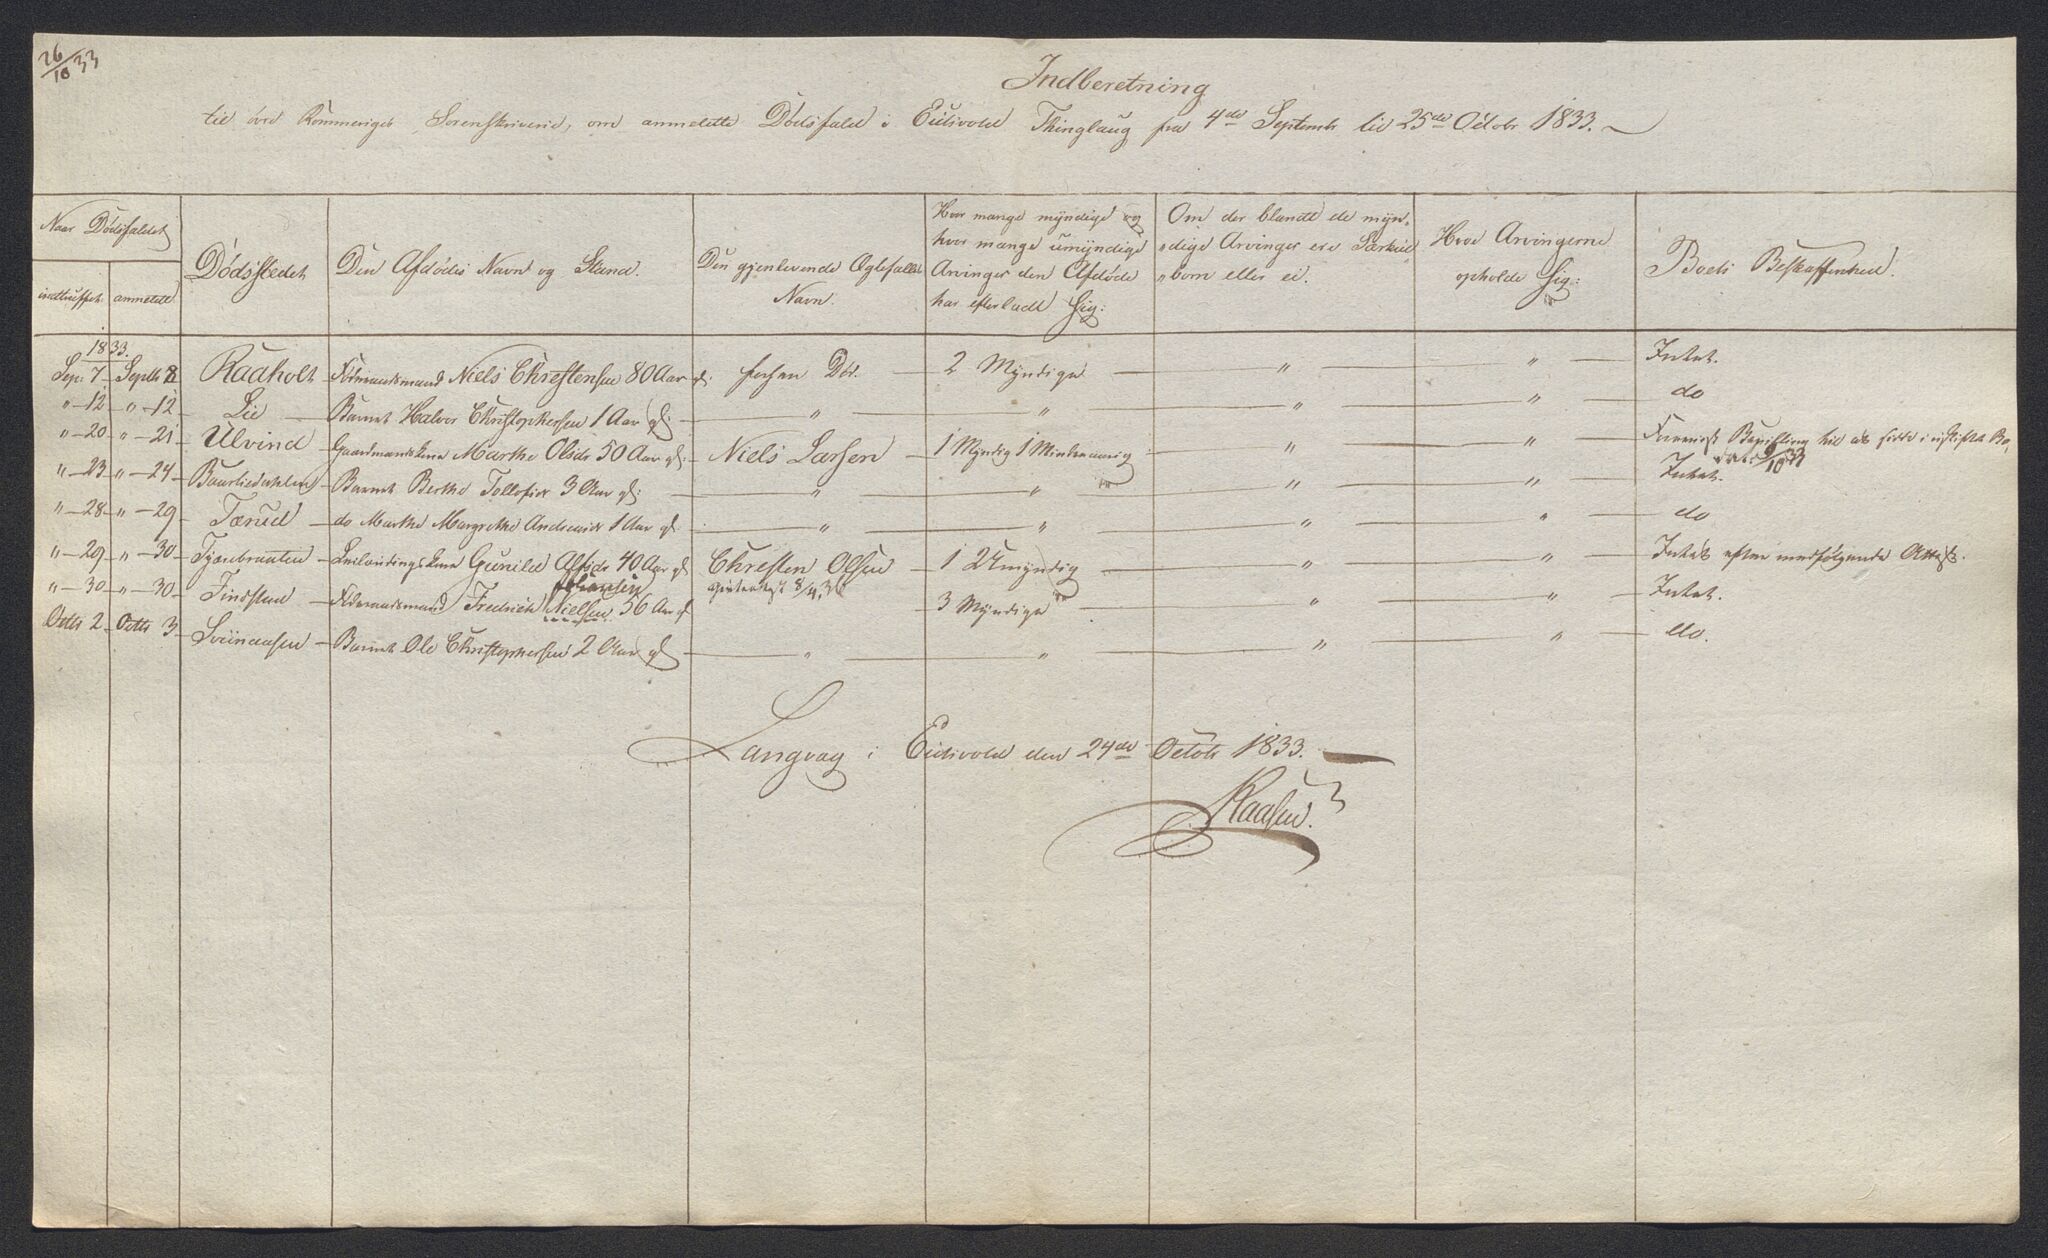 26/10 33
Indberetning
til øvre Rommeriges Sorenskriverie, om anmeldte Dødsfald i Eidsvold Thinglaug fra 4de Septembr til 25de Octobr 1833.
Naar Dødsfaldet
indtruffet anmeldt
Dødsstedet
Den Afdødes Navn og Stand.
Den gjenlevende Ægtefælles
Navn.
Hvor mange myndige og
hvor mange umyndige
Arvinger den Afdøde
har efterladt sig:
Om der blandt de myn-
dige Arvinger ere Særkuld
born eller ei.
Hvor Arvingerne
opholde sig:
Boets Beskaffenhed.
1833.
Sep: 7 Septb 8 Raaholt Føderaadsmand Niels Christensen 80 Aar gl: forhen Død. 2 Myndige " " Intet.
" 12 " 12 Lie Barnet Halvor Christophersen 1 Aar gl: " " " " do
" 20 " 21 Ulvind Gaardmandskone Marthe Olsdr 50 Aar gl: Niels Larsen 1 Myndig 1 " " Bevilling til at sidde i uskiftet Bo,
9/10 33
" 23 " 24 Barnet Berthe 3 Aar gl: " " " " Intet.
" 28 " 29 Tærud do Marthe Margrethe 1 Aar gl " " " " do
" 29 " 30 Gunild 40 Aar gl Christen Olsen 1 2 Umyndig " " Intet efter medfølgende Attest.
8/4 36
Johansen
" 30 " 30 Findstad Føderaadsmand Fredrich Nielsen 56 Aar gl 3 Myndige " " Intet.
Octbr 2 Octbr 3 Barnet Ole Christophersen 2 Aar gl " " " " do.
Langvag i Eidsvold den 24de Octobr 1833.